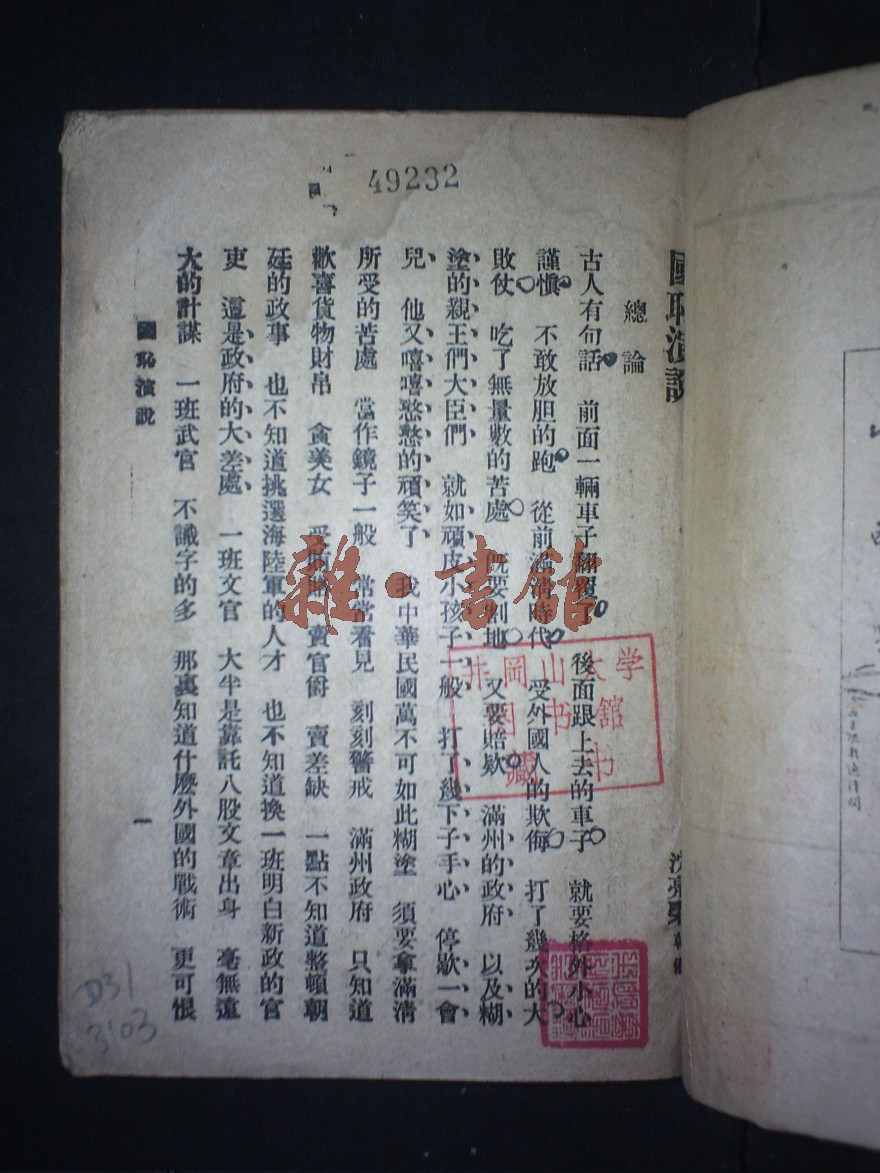 國恥演說
沈亮棨
總論
古人有句話 前面一輛車子翻覆了 後面跟上去的車子 就要格外小心
謹慎 不敢放胆的跑 從前滿清時代 受外國人的欺侮 打了幾次的大
敗仗 吃了無量數的苦處 既要割地 又要賠欵 滿州的政府、以及糊
塗的親王們大臣們 就如頑皮小孩子一般、打了幾下子手心、停歇一會
兒、他又嘻嘻憨憨的頑笑了 我中華民國萬不可如此糊塗 須要拿滿清
所受的苦處 當作鏡子一般 常常看見 刻刻警戒 滿州政府 只知道
歡喜貨物財帛 貪美女 受賄賂 賣官爵 賣差缺 一點不知道整頓朝
廷的政事 也不知道挑選海陸軍的人才 也不知道換一班明白新政的官
吏 這是政府的大差處、一班文官 大半是靠託八股文章出身 毫無遠
大的計謀 一班武官 不識字的多 那裏知道什麼外國的戰術 更可恨
國恥演說
一
49232
雜·書館
井岡山大学
图书館
藏书
D31
3103